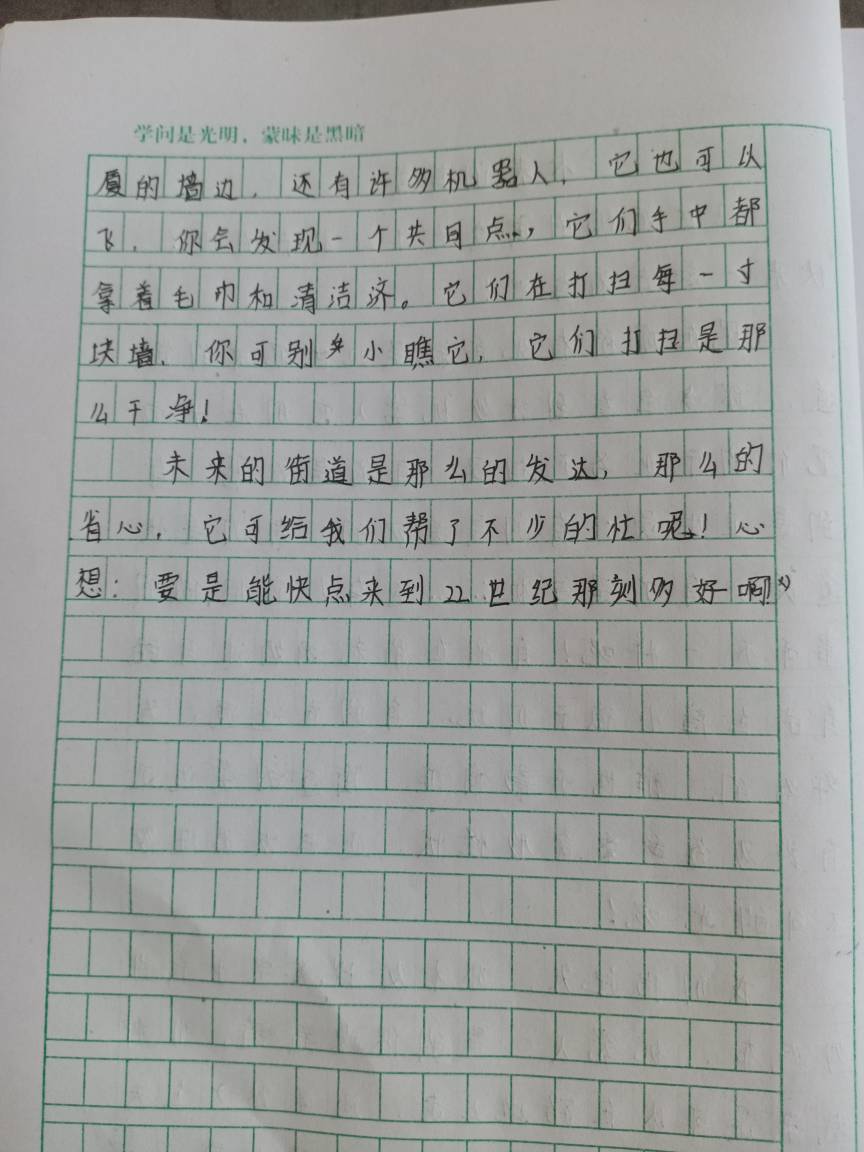 学问是光明，蒙昧是黑暗
厦的墙边，还有许多机器人，它也可以
飞，你会发现一个共同点，它们手中都
拿着毛巾和清洁济。它们在打扫每一寸
块墙，你可别小瞧它，它们打扫是那
么干净！
未来的街道是那么的发达，那么的
省心，它可给我们帮了不少的忙呢！心
想：要是能快点来到22世纪那刻多好啊！